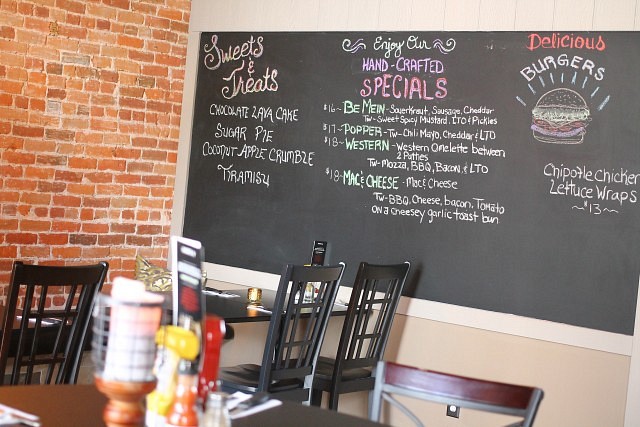 Sweets
&
Treats
Chocolate Lava Cake
Sugar Pie
Coconut Apple Crumble
Tiramisu
Enjoy Our
Hand-Crafted
Specials
$16- Be Mein - Sauerkraut, Sausage, Cheddar
Tw-Sweet Spicy Mustard, LTO & Pickles
$17- Popper - Tw-Chili Mayo, Cheddar & LTO
$18- Western - Western Omelette between
2 Patties
Tw-Mozza, BBQ, Bacon, & LTO
$18- Mac & Cheese - Mac & Cheese
Tw-BBQ, Cheese, bacon, Tomato
on a cheesey garlic toast bun
Delicious
Burgers
Chipotle Chicken
Lettuce Wraps
~$13~